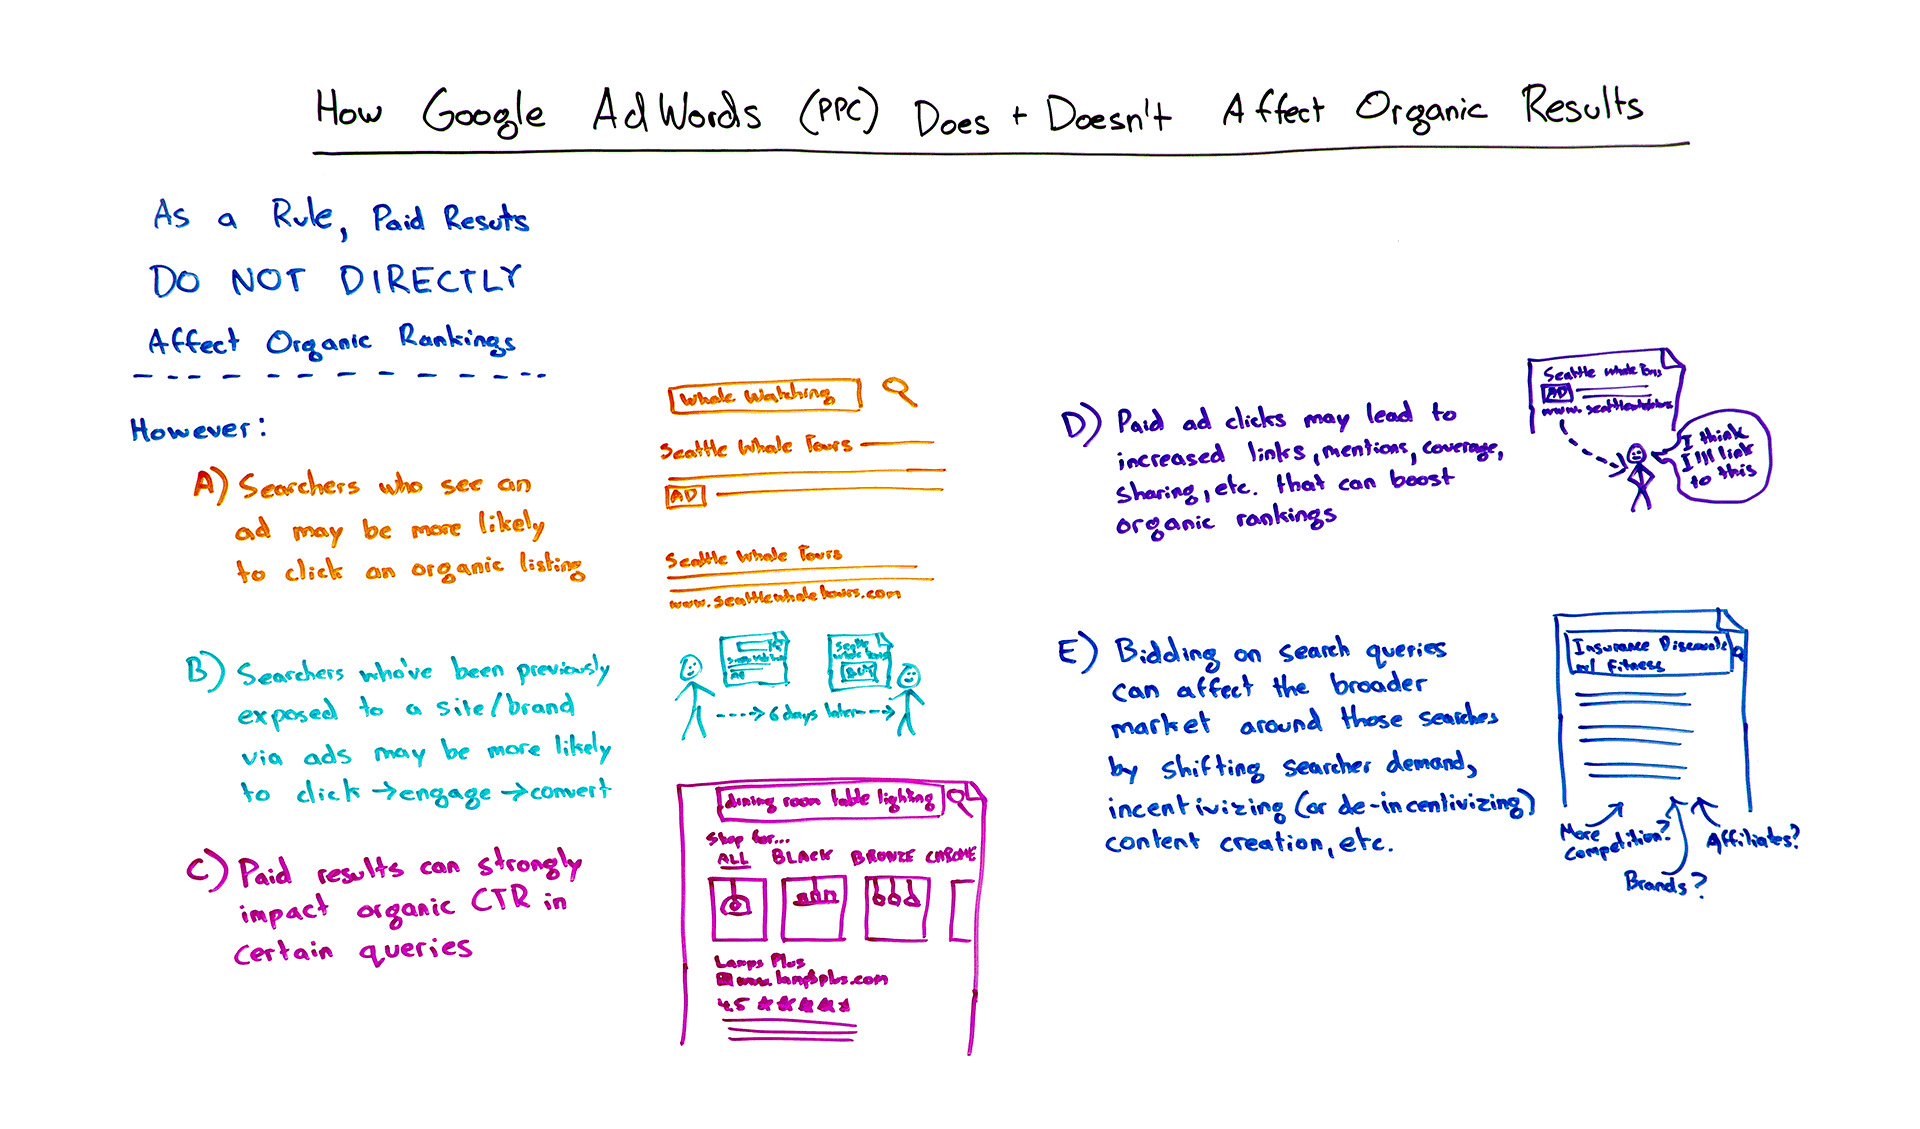 How Google AdWords (PPC) Does + Doesn't Affect Organic Results
As a Rule, Paid Resuts
DO NOT DIRECTLY
Affect Organic Rankings
However:
A) Searchers who see an
ad may be more likely
to click an organic listing
Whale Watching
Seattle Whale Tours
AD
Seattle Whale Tours
www.seattlewhaletours.com
B) Searchers who've been previously
exposed to a site/brand
via ads may be more likely
to click → engage → convert
Seattle
Whale Tours
BUY
6 days later
C) Paid results can strongly
impact organic CTR in
certain queries
dining room table lighting
Shop for...
ALL BLACK BRONZE CHROME
Lamps Plus
www.lampsplus.com
4.5
D) Paid ad clicks may lead to
increased links, mentions, coverage,
sharing, etc. that can boost
organic rankings
Seattle Whale Tours
AD
www.seattlewhaletours
I think
I'll link
to this
E) Bidding on search queries
can affect the broader
market around those searches
by shifting searcher demand,
incentivizing (or de-incentivizing)
content creation, etc.
Insurance Discounts
w/ Fitness
More
Competition?
Brands?
Affiliates?